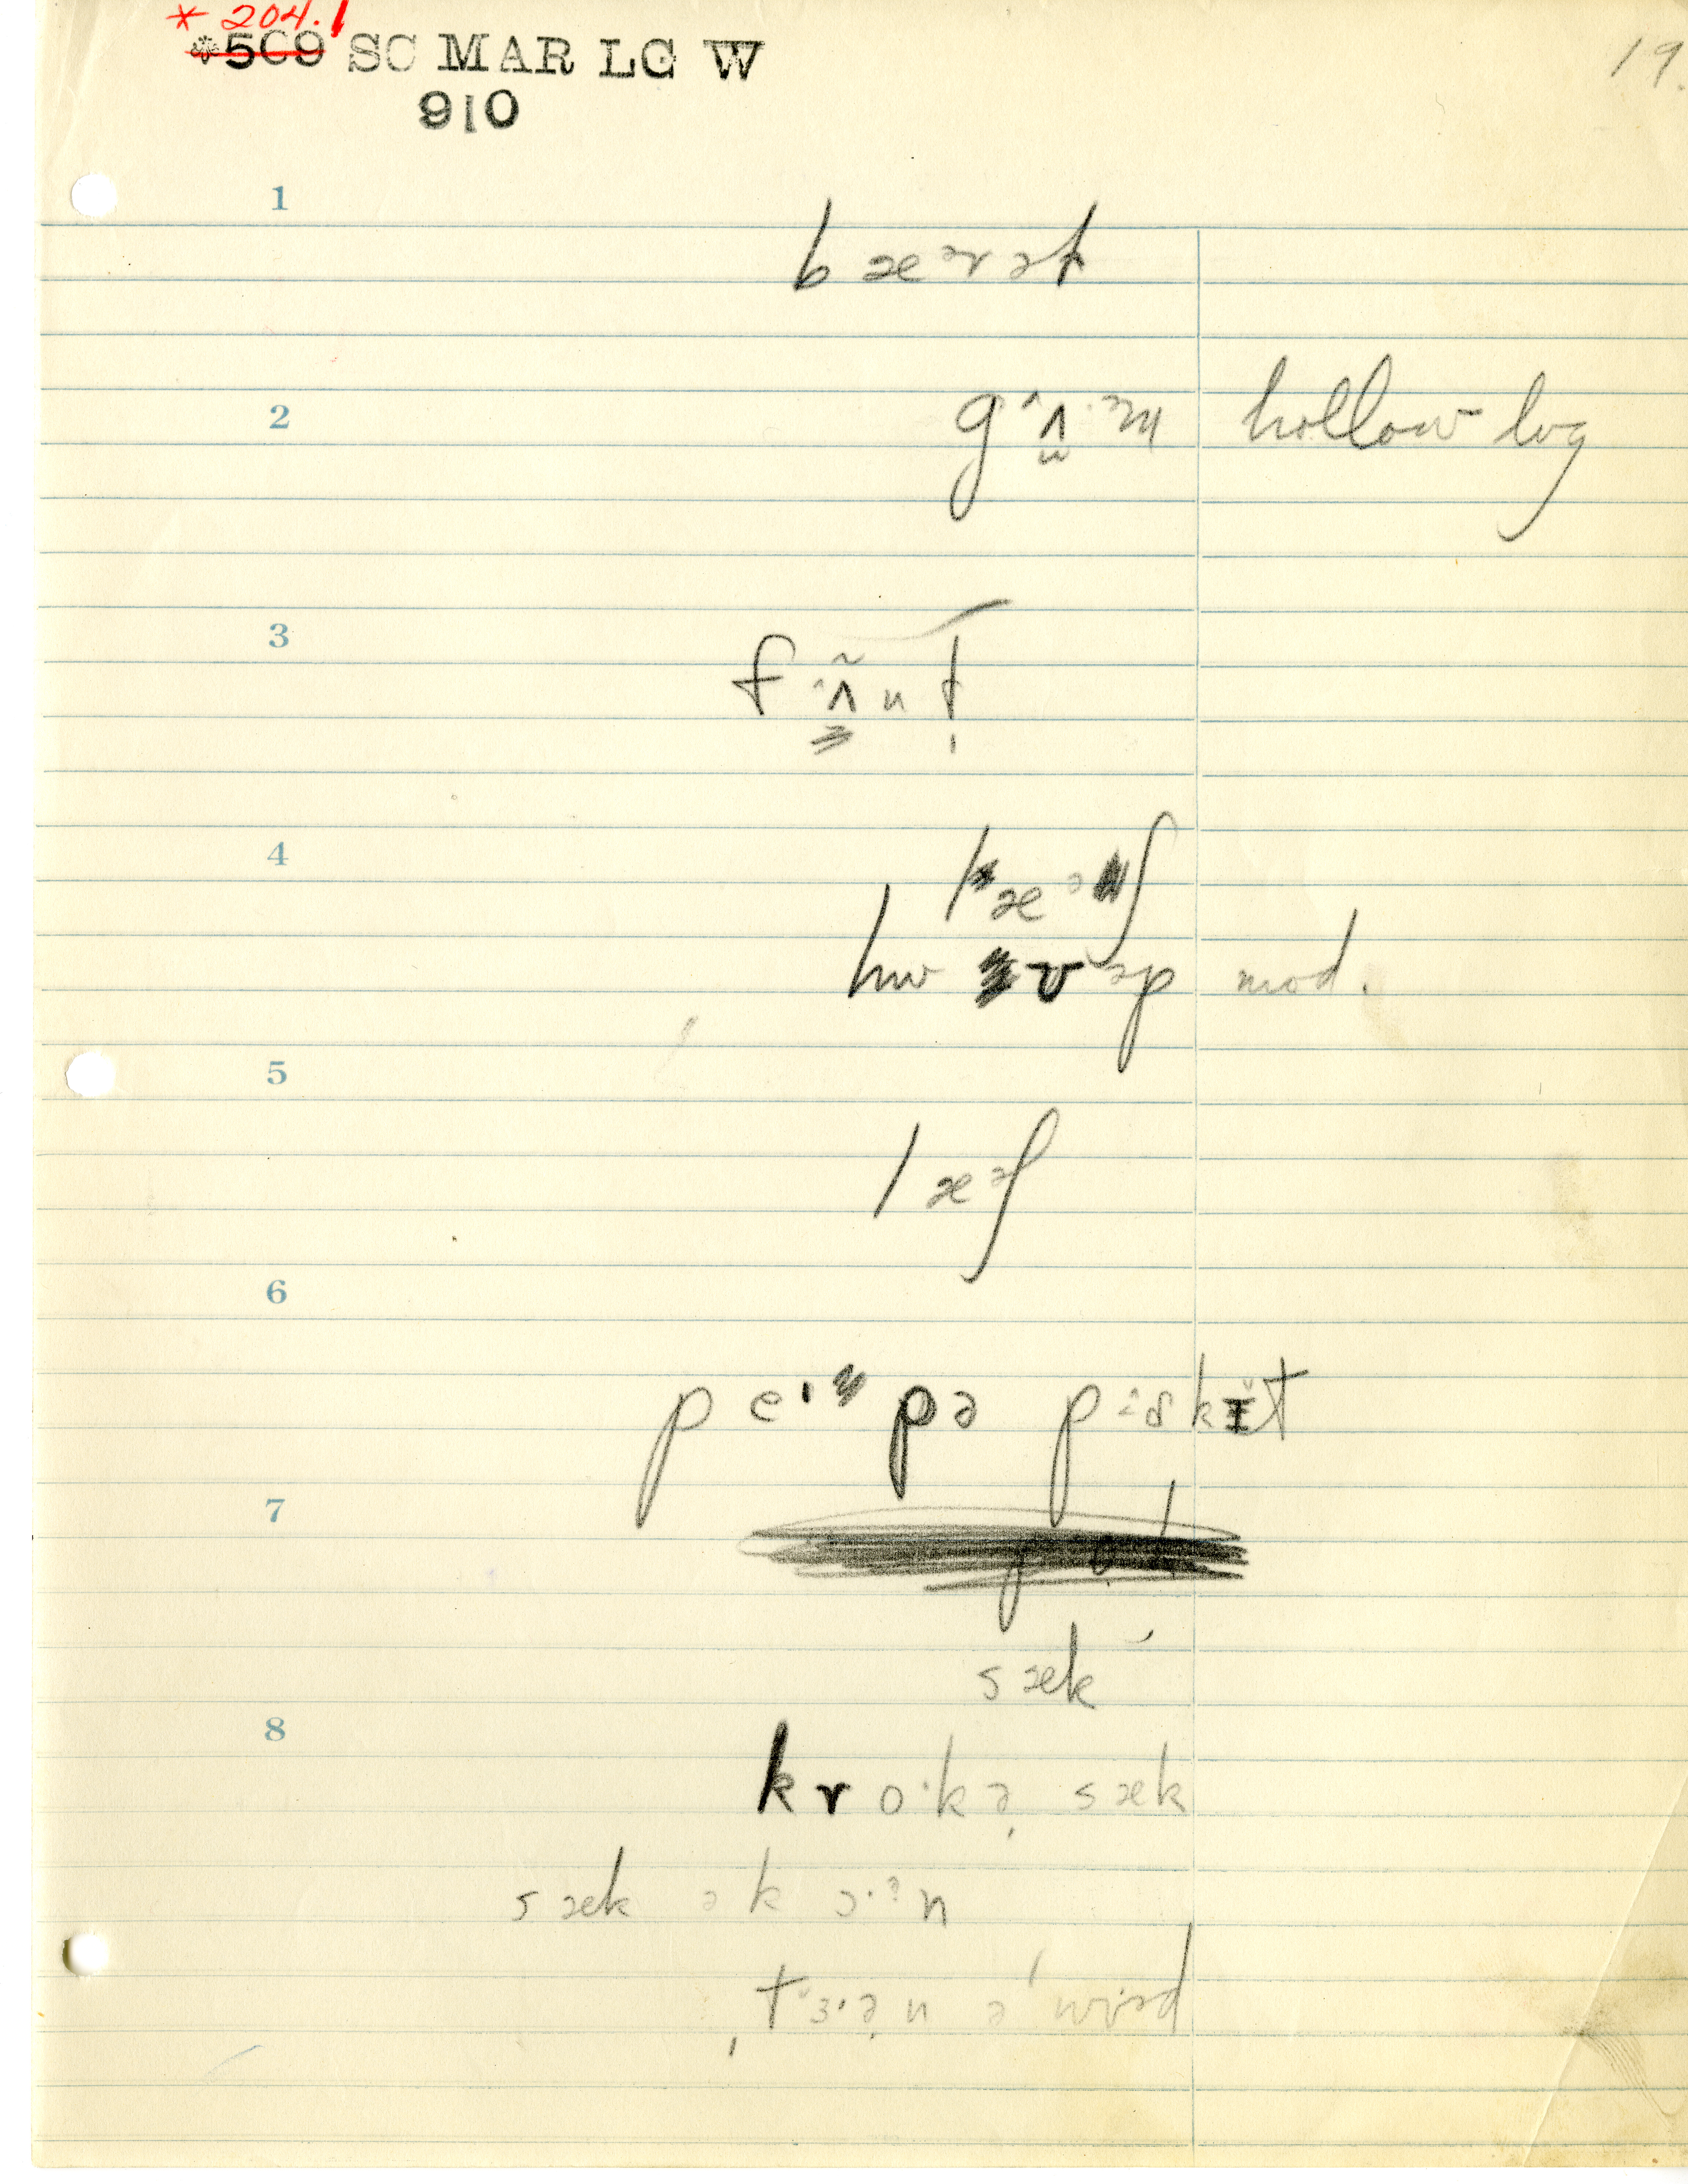 * 204.1
*5C9 SC MAR LG W
910
19.
1
bæᵊrət
2
gʌm hollow log
3
fʌ̃nt
4
læᵊʃ
hwʊəp mod.
5
læᵊʃ
6
peɪpə pɪskɪt
7
sæk
8
kro·kə sæk
sæk ə k ɔ·ᵊn
tɜ·ən ə wʊd